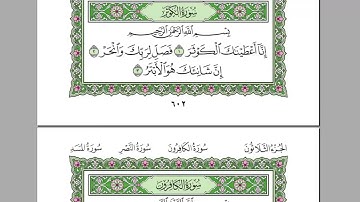 سُورَةُ الْكَوْثَرِ
بِسْمِ اللَّهِ الرَّحْمَٰنِ الرَّحِيمِ
إِنَّا أَعْطَيْنَاكَ الْكَوْثَرَ ١ فَصَلِّ لِرَبِّكَ وَانْحَرْ ٢
إِنَّ شَانِئَكَ هُوَ الْأَبْتَرُ ٣
٦٠٢
الجزء الثلاثون سورة الكافرون سورة النصر سورة المسد
سُورَةُ الْكَافِرُونَ